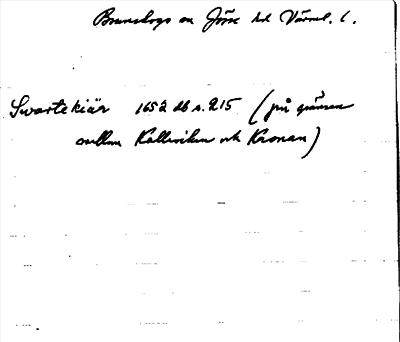 Brunskogs sn Jösse hd Värml. l.
Swartekiär 1652 db s. 215 (på gränsen
mellan Kallviken och Kronan)